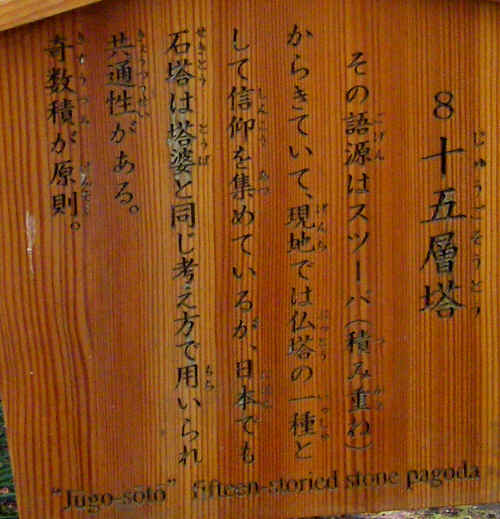 8 十五層塔
その語源はスツーパ(積み重ね)
からきていて、現地では仏塔の一種と
して信仰を集めているが、日本でも
石塔は塔婆と同じ考え方で用いられ
共通性がある。
奇数積が原則。
"Jugo-soto" fifteen-storied stone pagoda